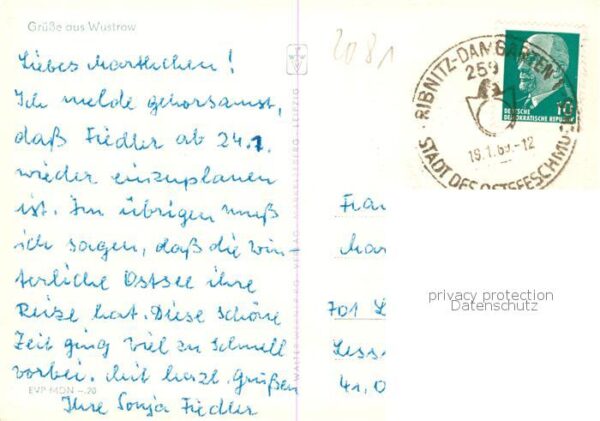 Grüße aus Wustrow
Liebes Marthchen!
Ich melde gehorsamst,
daß Fiedler ab 24.1.
wieder einzuplanen
ist. Im übrigen muß
ich sagen, daß die win-
terliche Ostsee ihre
Reize hat. Diese schöne
Zeit ging viel zu schnell
vorbei. Mit herzl. Grüßen
Ihre Sonja Fiedler
EVP MDN -.20
2081
RIBNITZ-DAMGARTEN 1
259
19.1.69.-12
STADT DES OSTSEESCHMU
10
DEUTSCHE
DEMOKRATISCHE REPUBLIK
Frau
Mar
701 L
Less
41, 0
privacy protection
Datenschutz